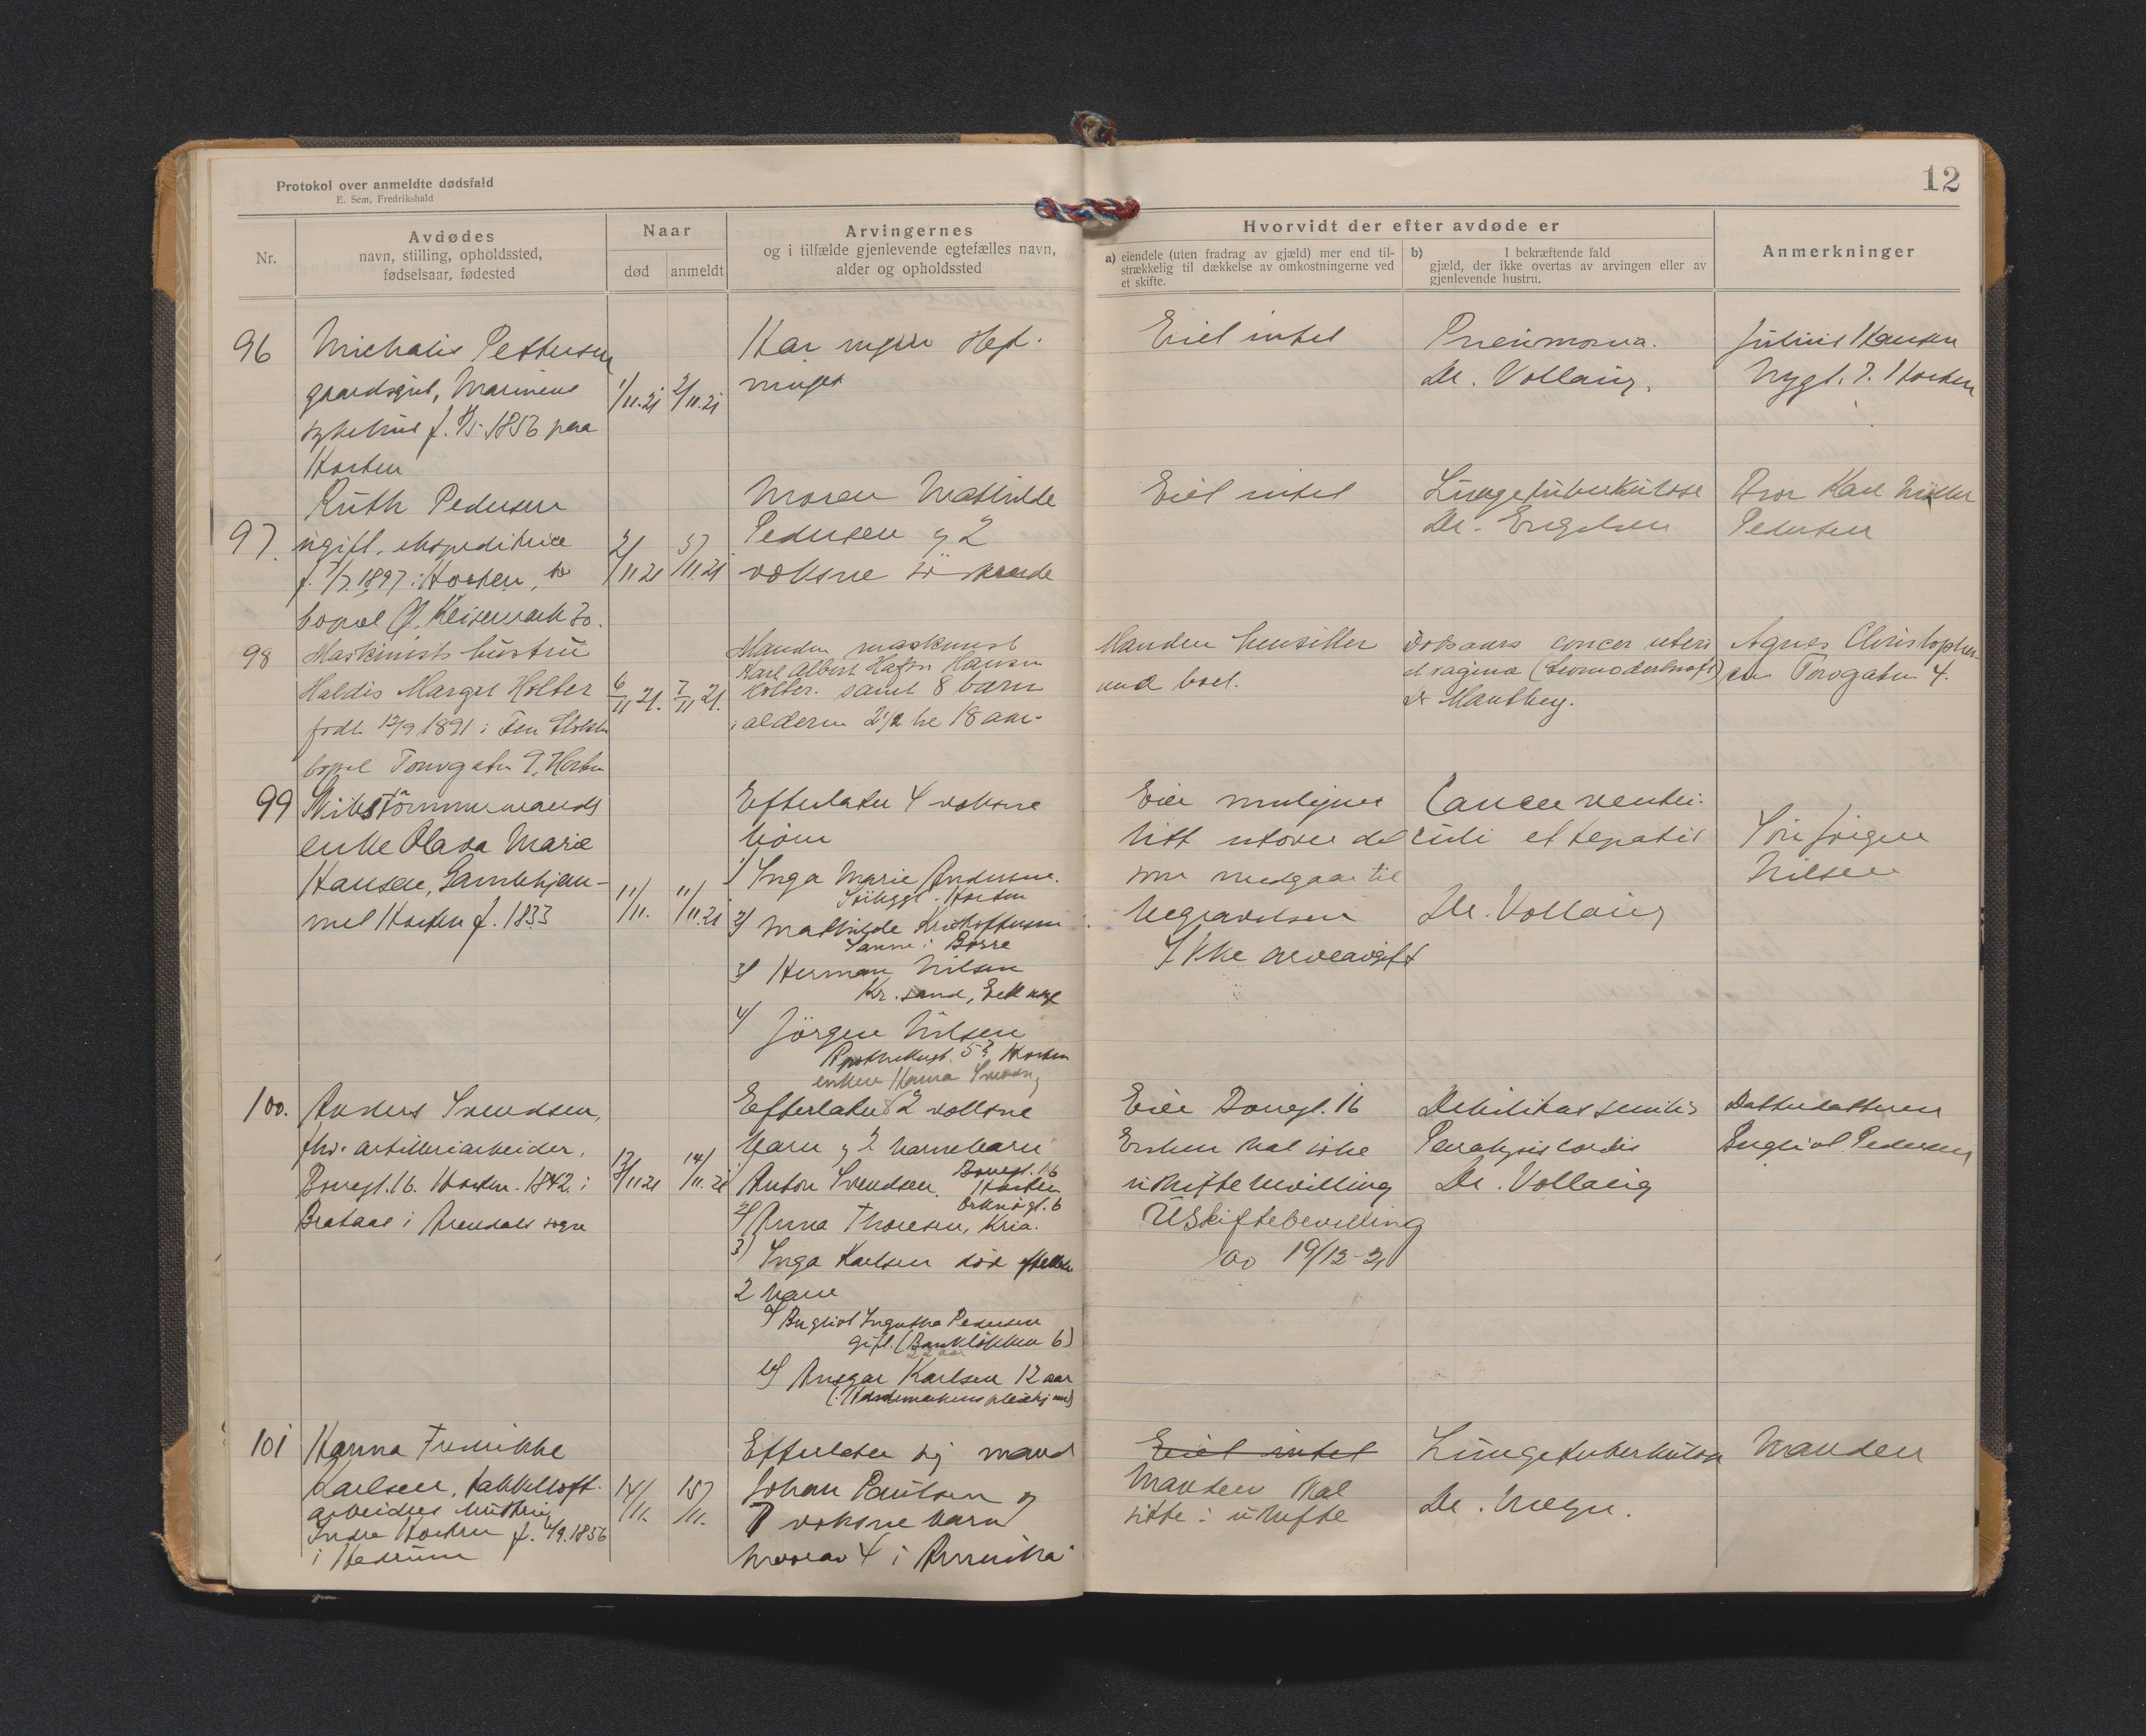 Protokol over anmeldte dødsfald
E. Sem, Fredrikshald
12
Nr.
Avdødes
navn, stilling, opholdssted,
fødselsaar, fødested
Naar
død
anmeldt
Arvingernes
og i tilfælde gjenlevende egtefælles navn,
alder og opholdssted
Hvorvidt der efter avdøde er
a) eiendele (uten fradrag av gjæld) mer end til-
strækkelig til dækkelse av omkostningerne ved
et skifte.
b) I bekræftende fald
gjæld, der ikke overtas av arvingen eller av
gjenlevende hustru.
Anmerkninger
96
Michalis Pettersen
gaardsgut, Marinens
sykehus f. 1856 paa
Horten
1/11.21
2/11.21
Har ingen
Eiet intet
Pneumonia.
Dr. Vollaug.
Julius Hansen
Nygt. 7. Horten
97
Ruth Pedersen
ugift, ekspeditrice
f. 1/7 1897 i Horten,
bopæl Gl. Keisemark 30.
2/11 21
5/11.21
Moren Mathilde
Pedersen og 2
voksne söskende
Eiet intet
Lungetuberkulose
Dr. Engelsen
Bror Karl
Pedersen
98
Maskinists hustru
Haldis Margit Holter
født 12/9 1891 i
bopæl Torvgaten 9, Horten
6/11 21.
7/11 21.
Manden maskinist
Karl Albert Hansen
Holter. samt 8 barn
i alderen 2 1/2 til 18 aar.
Manden hensitter
med boet.
Dødsaars cancer uteri
et vagina (Livmoderkræft)
Dr Manthey.
Agnes Christophers-
en Torvgaten 4.
99
Skibstømmermands
enke Olava Marie
Hansen, Gamlehjem-
met Horten f. 1833
11/11.
11/11.21
Efterlater 4 voksne
börn
1/ Inga Marie Andersen.
Horten
2/ Mathilde Kristoffersen
Sanne i Borre
3/ Herman Nilsen
Kr. sand,
4/ Jörgen Nilsen
Apothekergt. 5 Horten
enken Hanna
Eier muligens
litt utover det
som medgaar til
begravelsen
Ikke arveavgift
Cancer ventri-
culi et hepatis
Dr. Vollaug
Sön Jörgen
Nilsen
100.
Anders Svendsen,
fhv. artilleriarbeider,
Bouegt. 16. Horten. 1842 i
Arendals sogn
12/11 21
14/11. 21
Efterlater 2 voksne
barn og 2 barnebarn
Anton Svendsen. Bouegt. 16
Horten
2/ Anna Thoresen, Kria.
3/ Inga Karlsen död efterlater
2 barn
a/ Bugliot Ingutha Pedersen
gift. (Bankløkken 6)
22 aar
b/ Ansgar Karlsen 12 aar
Eier Bouegt. 16
Enken skal söke
uskiftebevilling
Uskiftebevilling
av 19/12-21
Debilitas senilis
Paralysis cordis
Dr. Vollaug
Datterdatteren
Bugliot Pedersen
101
Hanna Fredrikke
Karlsen, takkelloft-
arbeiders hustru
Indre Horten f. 4/9.1856
i Hedrum
14/11.
15/11.
Efterlater sig mand
Johan Paulsen og
7 voksne barn
hvorav 4 i Amerika
Eiet intet
Manden skal
sitte i uskifte
Lungetuberkulose
Dr. Megn.
Manden